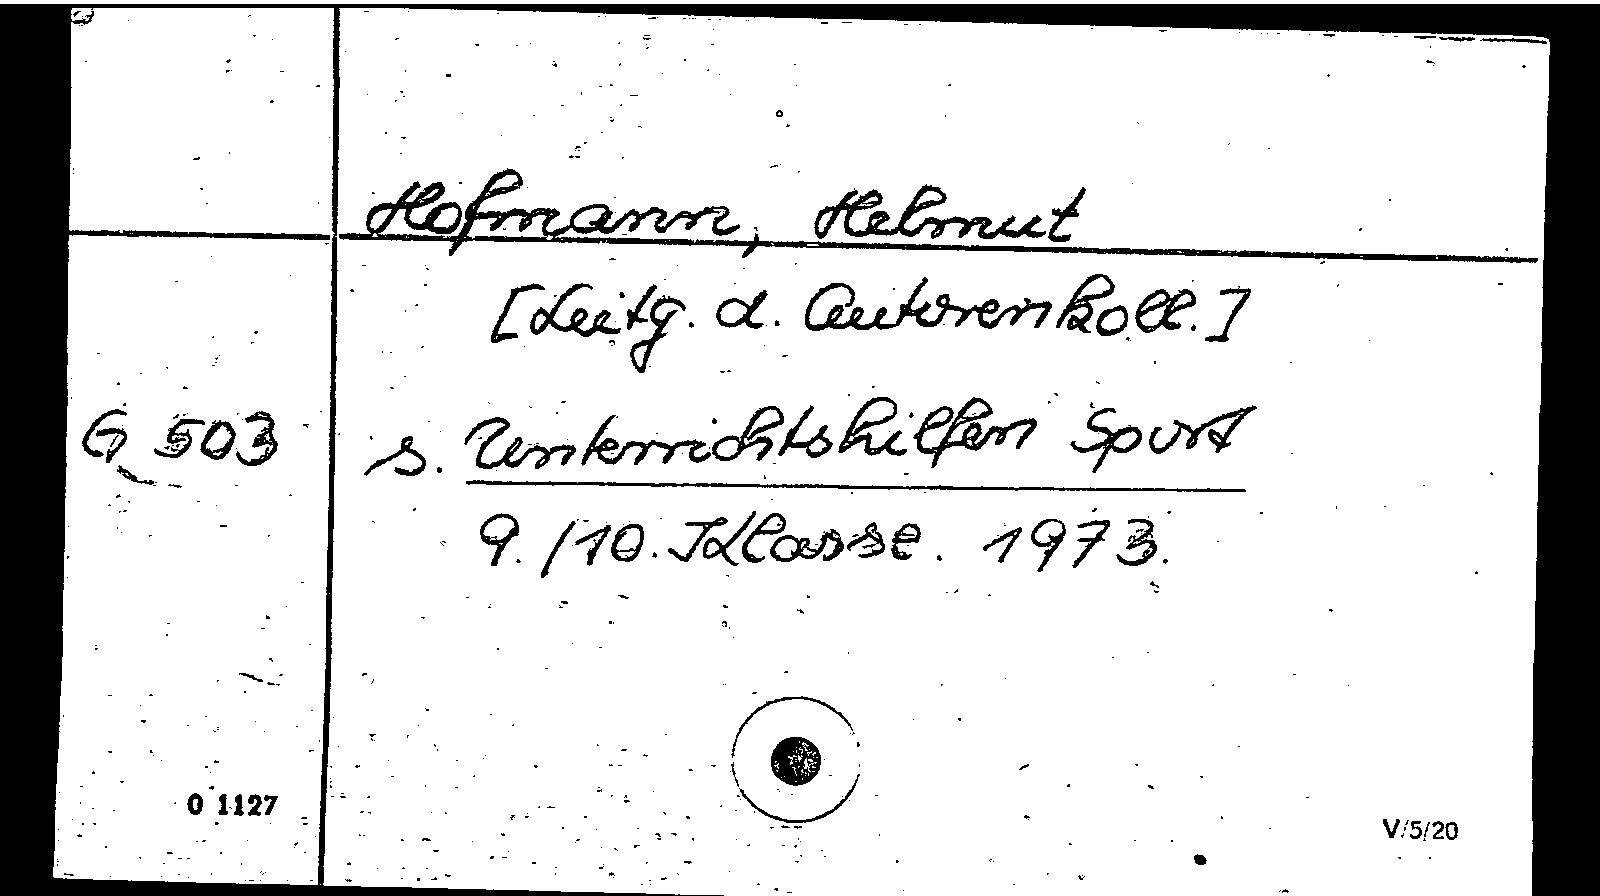 Hofmann, Helmut
[Leitg. d. Autorenkoll.]
G 503 s. Unterrichtshilfen Sport
9./10. Klasse. 1973.
0 1127
V/5/20